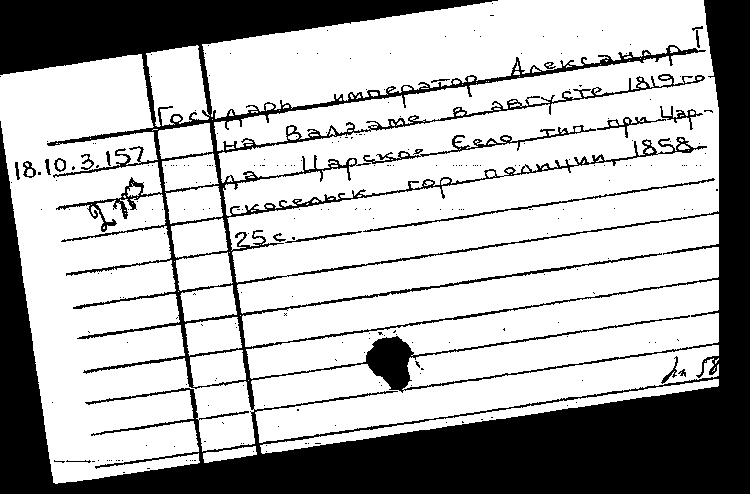 Государь император Александр I
на Валааме в августе 1819 го-
18.10.3.157
да Царское Село, тип при Цар-
скосельск. гор. полиции, 1858
25 с.